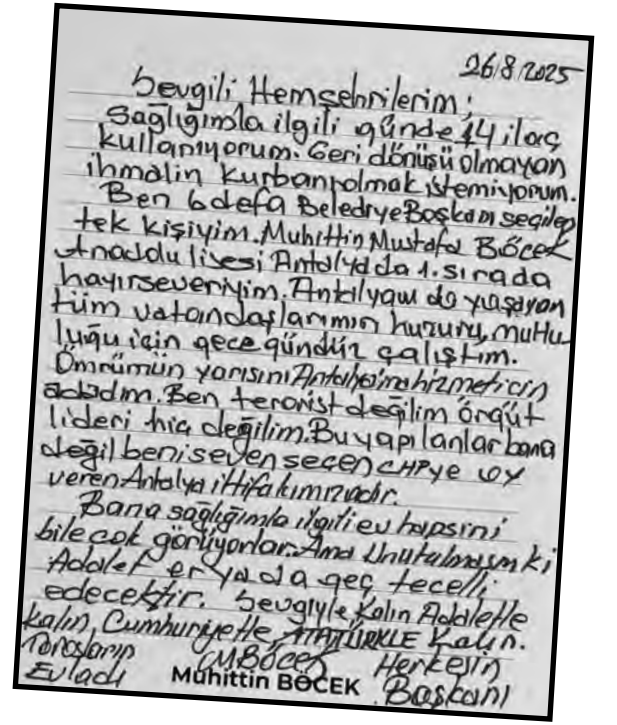 26/8/2025
Sevgili Hemşehrilerim;
Sağlığımla ilgili günde 14 ilaç
kullanıyorum. Geri dönüşü olmayan
ihmalin kurbanı olmak istemiyorum.
Ben 6 defa Belediye Başkanı seçilen
tek kişiyim. Muhittin Mustafa Böcek
Anadolu lisesi Antalyada 1. sırada
hayırseveriyim. Antalyam da yaşayan
tüm vatandaşlarımın huzuru, mutlu-
luğu için gece gündüz çalıştım.
Ömrümün yarısını Antalyama hizmet için
adadım. Ben terörist değilim örgüt
lideri hiç değilim. Bu yapılanlar bana
değil beni seven seçen CHPye oy
veren Antalya ittifakımızadır.
Bana sağlığımla ilgili ev hapsini
bile çok görüyorlar. Ama Unutulmasın ki
Adalet er ya da geç tecelli
edecektir. Sevgiyle, Kalın Adaletle
Kalın, Cumhuriyetle, ATATÜRKLE Kalın.
Torosların Herkesin
Evladı Muhittin BÖCEK Başkanı